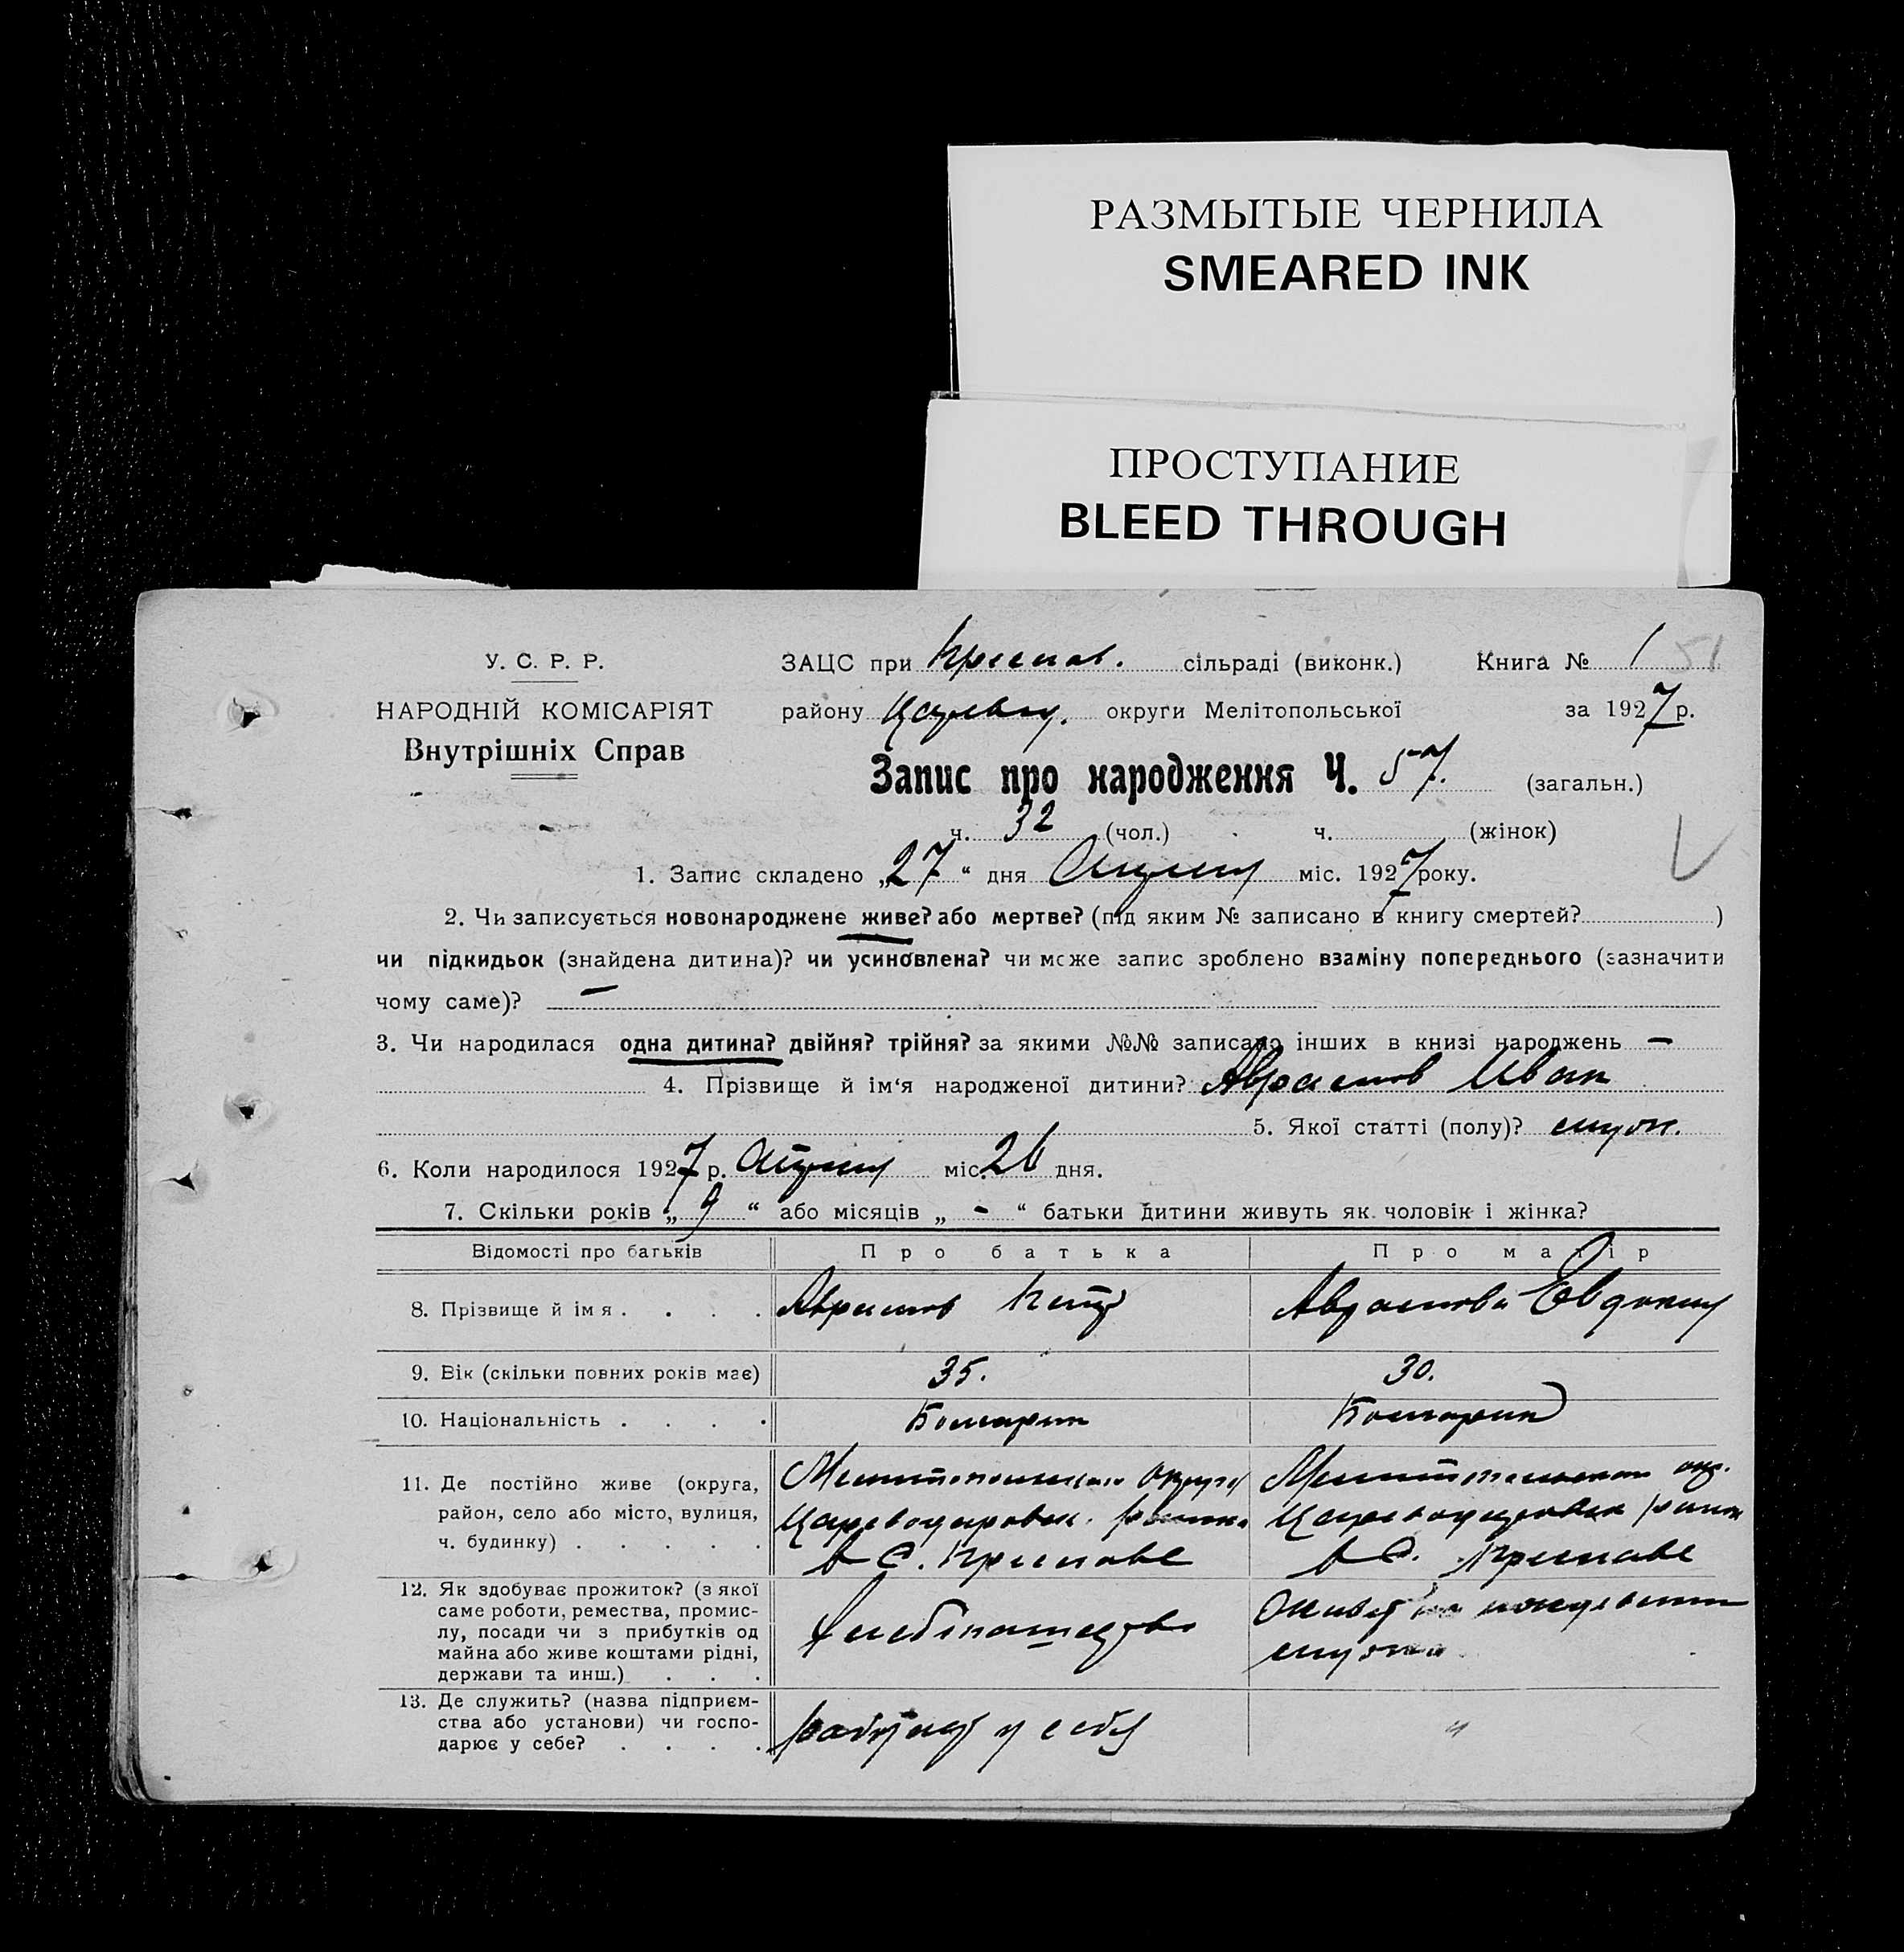 РАЗМЫТЫЕ ЧЕРНИЛА
SMEARED INK
ПРОСТУПАНИЕ
BLEED THROUGH
У. С. Р. Р. ЗАЦС при сільраді (виконк.) Книга № 1 51
НАРОДНІЙ КОМІСАРІЯТ району округи Мелітопольської за 1927 р.
Внутрішніх Справ
Запис про народження Ч. 57. (загальн.)
ч. 32 (чол.) ч. (жінок)
1. Запис складено „27“ дня Апреля міс. 1927 року.
2. Чи записується новонароджене живе? або мертве? (під яким № записано в книгу смертей? )
чи підкидьок (знайдена дитина)? чи усиновлена? чи може запис зроблено взаміну попереднього (зазначити
чому саме)? —
3. Чи народилася одна дитина? двійня? трійня? за якими №№ записано інших в книзі народжень —
4. Прізвище й ім‘я народженої дитини? Аврамов Иван
5. Якої статті (полу)?
6. Коли народилося 1927 р. Апреля міс. 26 дня.
7. Скільки років „ 9 “ або місяців „ - “ батьки дитини живуть як чоловік і жінка?
Відомості про батьків Про батька Про матір
8. Прізвище й імя . . . . Аврамов Петр Аврамова Евдокия
9. Вік (скільки повних років має) 35. 30.
10. Національність . . . . Болгарин Болгарин
11. Де постійно живе (округа, Мелитопольского округа Мелитопольского окр.
район, село або місто, вулиця, Цареводаровск. района Цареводаровск района
ч. будинку) . . . . . в С. в С.
12. Як здобуває прожиток? (з якої
саме роботи, ремества, промис-
лу, посади чи з прибутків од Хлебопашество
майна або живе коштами рідні, мужа
держави та инш.) . . .
13. Де служить? (назва підприєм-
ства або установи) чи госпо- работает у себя
дарює у себе? . . . .